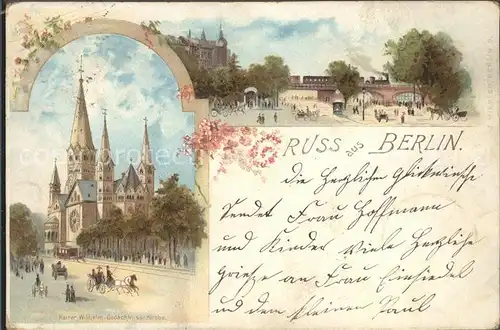 GRUSS aus BERLIN.
Die Herzlichen Glückwünsche
Sendet Frau Hoffmann
und Kinder Viele Herzliche
Grüsse an Frau Einsiedel
und den kleinen Paul
Kaiser Wilhelm-Gedächtniss-Kirche.